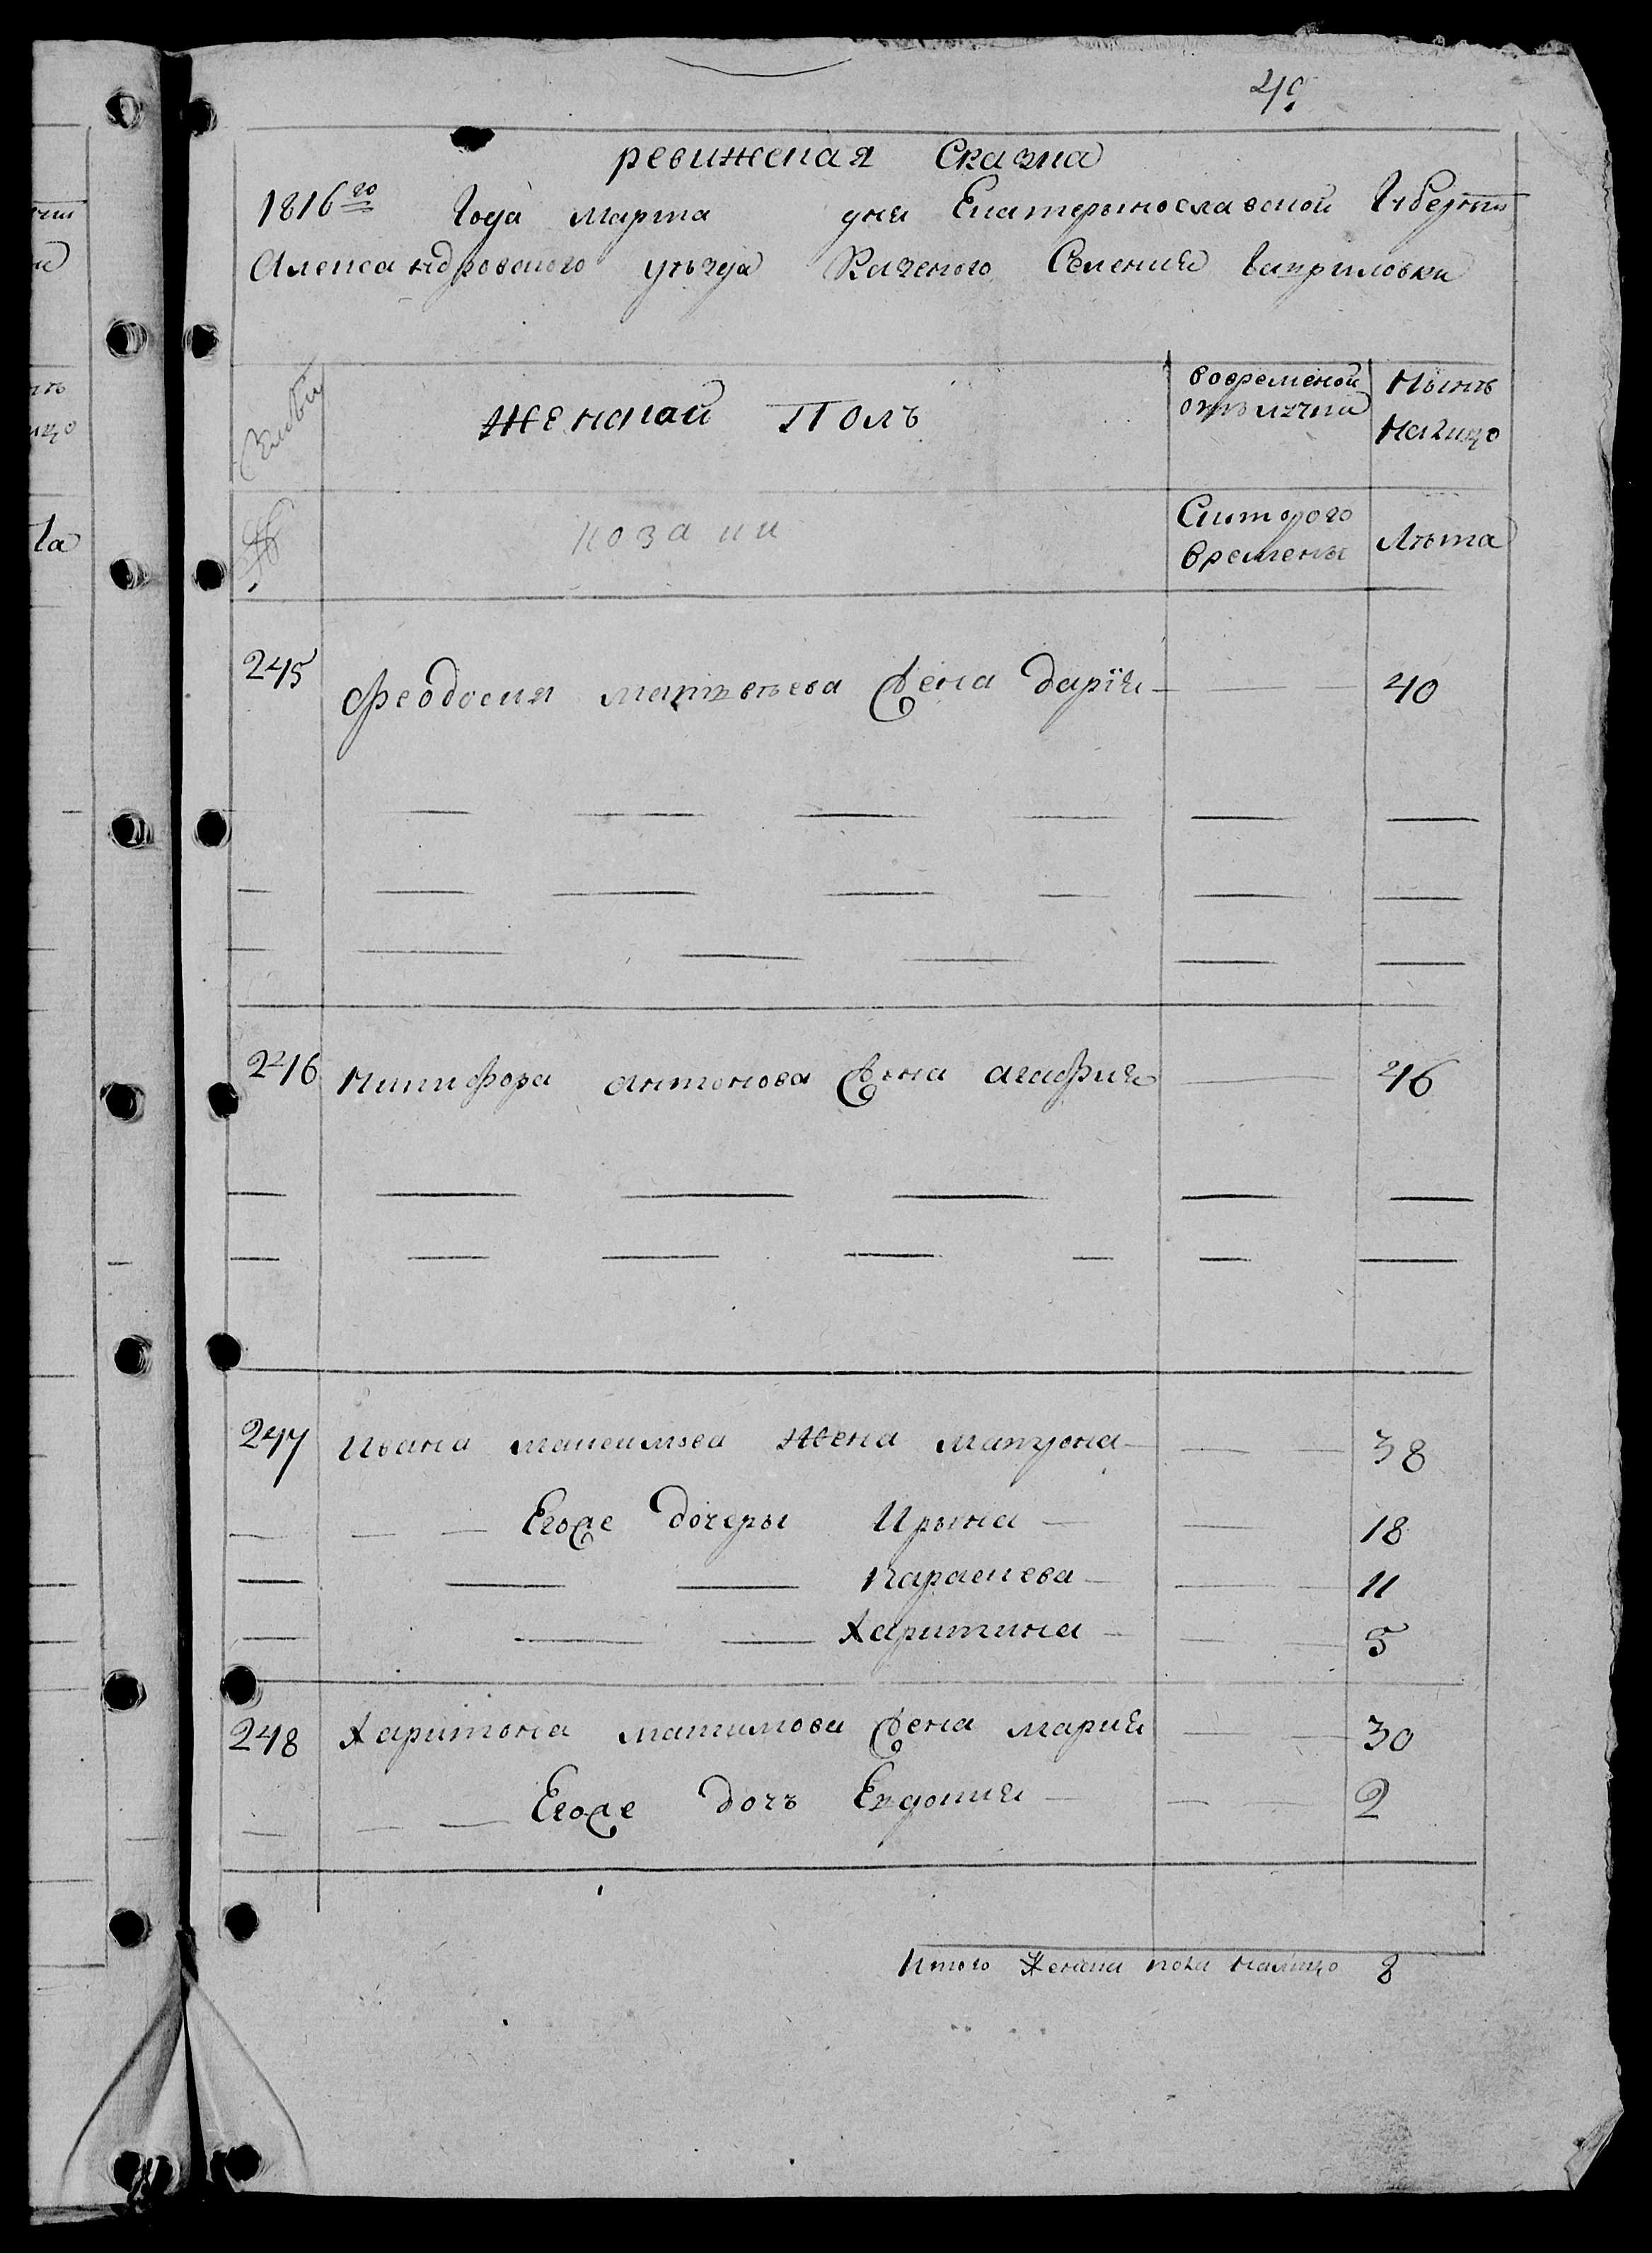 49
ревижская Сказка
1816го Года Марта дня Екатерынославской Губернии
Александровского уѣзда Казеного Селения Гаврыловки
женский Полъ
вовременой отълучки
Нынѣ налицо
№
козаки
Скоторого времены
Лѣта
245 Феодосия Матвѣева жена Дарія — 40
246 Никифора Антонова жена агафия — 46
247 Ивана Максимова Жена Матрона — 38
Егоже дочеры Ирына — 18
Параскева — 11
Харитина — 5
248 Харитона Максимова жена Мария — 30
Егоже дочъ Евдокия — 2
Итого Женска пола налицо 8